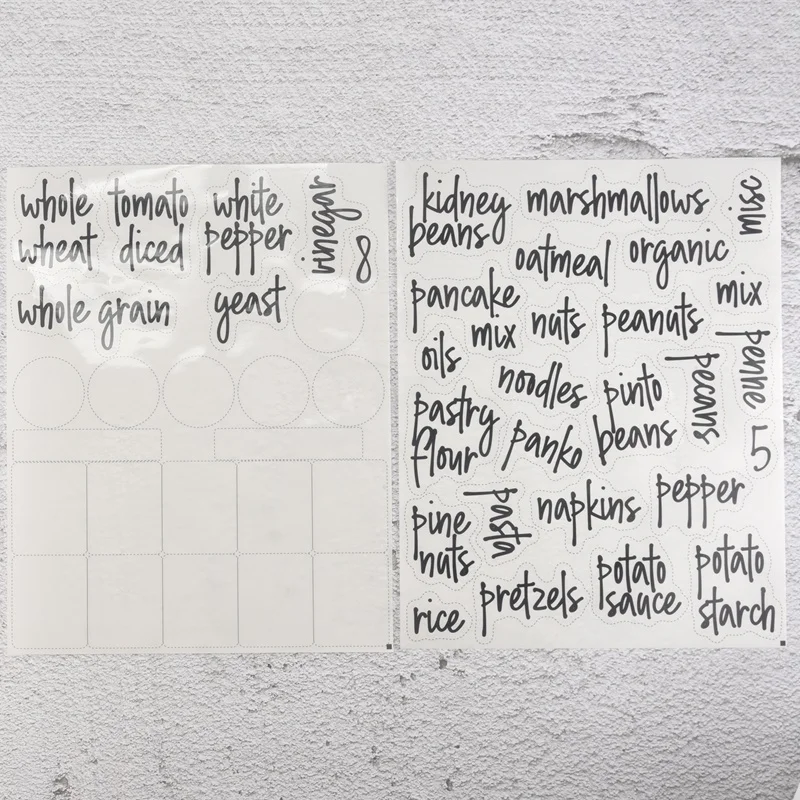 whole wheat
tomato diced
white pepper
vinegar
8
whole grain
yeast
kidney beans
marshmallows
misc
oatmeal
organic
pancake mix
nuts
peanuts
mix
oils
noodles
pinto beans
pecans
penne
pastry flour
panko
5
pine nuts
pasta
napkins
pepper
rice
pretzels
potato sauce
potato starch